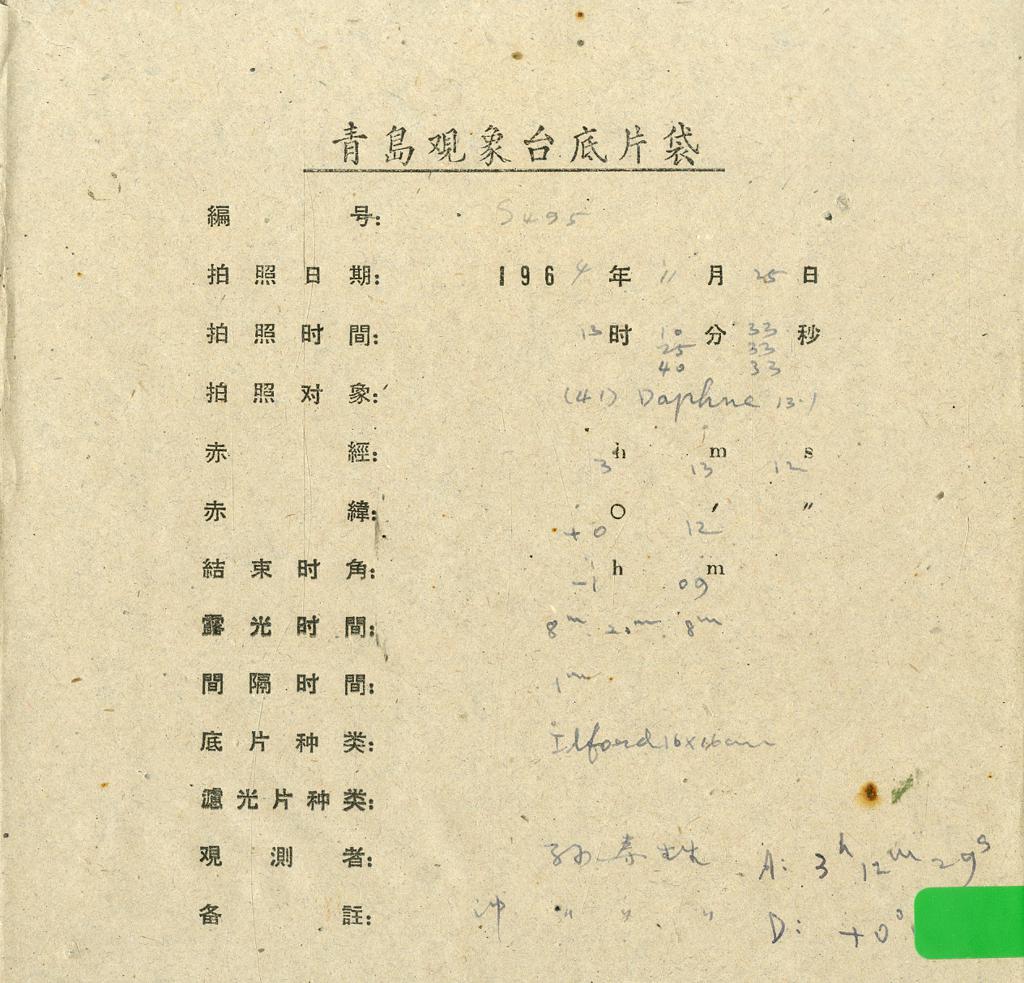 青島观象台底片袋
編号: S495
拍照日期: 1964年11月25日
拍照时間: 13时10分33秒
25 33
40 33
拍照对象: (41) Daphne 13.1
赤經: 3h 13m 12s
赤緯: +0° 12′ ″
結束时角: -1h 09m
露光时間: 8m 20m 8m
間隔时間: 1m
底片种类: Ilford 16x16cm
濾光片种类:
观測者: 孙寿
A: 3h 12m 29s
备註: 冲 " " "
D: +0°